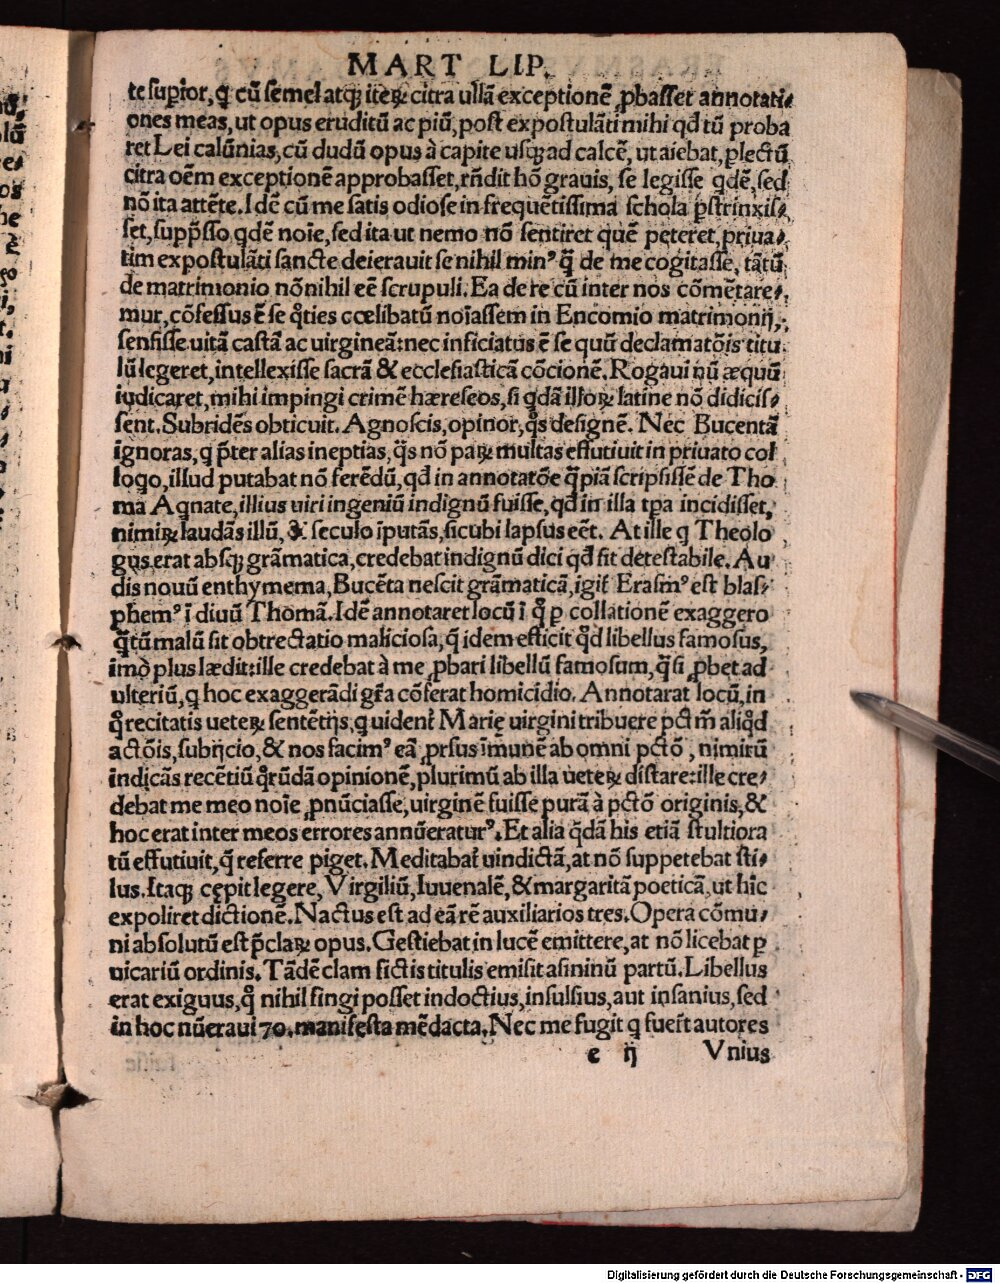 MART LIP.
te suꝑior, q̇ cū semel atqꝫ iteꝝ citra ullā exceptionē ꝓbasset annotati⸗
ones meas, ut opus eruditū ac piū, post expostulāti mihi qd̄ tū proba
ret Lei calūnias, cū dudū opus à capite usqꝫ ad calcē, ut aiebat, ꝑlectū
citra oēm exceptionē approbasset, rn̄dit hō grauis, se legisse qdē, sed
nō ita attēte. Idē cū me satis odiose in frequētissima schola p̄strinxis⸗
set, supp̄sso qdē noīe, sed ita ut nemo nō sentiret quē peteret, priua⸗
tim expostulāti sancte deierauit se nihil minꝰ q̄ de me cogitasse, tātū
de matrimonio nōnihil eē scrupuli. Ea de re cū inter nos cōmētare⸗
mur, cōfessus ē se q̊ties cœlibatū noīassem in Encomio matrimonij,
sensisse uitā castā ac uirgineā: nec inficiatus ē se quū declamatōis titu
lū legeret, intellexisse sacrā & ecclesiasticā cōcionē. Rogaui nū æquū
iudicaret, mihi impingi crimē hæreseos, si qdā illoꝝ latine nō didicis⸗
sent. Subridēs obticuit. Agnoscis, opinor, q̊s designē. Nec Bucentā
ignoras, q p̄ter alias ineptias, q̄s nō paꝝ multas effutiuit in priuato col
logo, illud putabat nō ferēdū, qd̄ in annotatōe q̄piā scripsissē de Tho
ma Aqnate, illius uiri ingeniū indignū fuisse, qd̄ in illa tp̄a incidisset,
nimiꝝ laudās illū, & seculo īputās, sicubi lapsus eēt. At ille q Theolo
gus erat absqꝫ grāmatica, credebat indignū dici qd̄ sit detestabile. Au
dis nouū enthymema, Bucēta nescit grāmaticā, igit̄ Erasmꝰ est blas⸗
phemꝰ ī diuū Thomā. Idē annotaret locū ī q̊ ꝑ collationē exaggero
q̄tū malū sit obtrectatio maliciosa, q̄ idem efficit qd̄ libellus famosus,
imò plus lædit: ille credebat à me ꝓbari libellū famosum, q̄si ꝓbet ad
ulteriū, q hoc exaggerādi gr̄a cōferat homicidio. Annotarat locū, in
q̊ recitatis ueteꝝ sentētijs, q uident̄ Marię uirgini tribuere pctī m̄ aliqd
actōis, subijcio, & nos facimꝰ eā ꝓrsus īmunē ab omni pctō, nimirū
indicās recētiū q̊rūdā opinionē, plurimū ab illa ueteꝝ distare: ille cre⸗
debat me meo noīe ꝓnūciasse, uirginē fuisse purā à pctō originis, &
hoc erat inter meos errores annūeraturꝰ. Et alia q̄dā his etiā stultiora
tū effutiuit, q̄ referre piget. Meditabat̄ uindictā, at nō suppetebat sti⸗
lus. Itaqꝫ cępit legere, Virgiliū, Iuuenalē, & margaritā poeticā, ut hīc
expoliret dictionē. Nactus est ad eā rē auxiliarios tres. Opera cōmu⸗
ni absolutū est p̄claꝝ opus. Gestiebat in lucē emittere, at nō licebat ꝑ
uicariū ordinis. Tādē clam fictis titulis emisit asininū partū. Libellus
erat exiguus, q̊ nihil fingi posset indoctius, insulsius, aut insanius, sed
in hoc nūeraui 70. manifesta mēdacta. Nec me fugit q fuer̄t autores
e ij Vnius
Digitalisierung gefördert durch die Deutsche Forschungsgemeinschaft - DFG